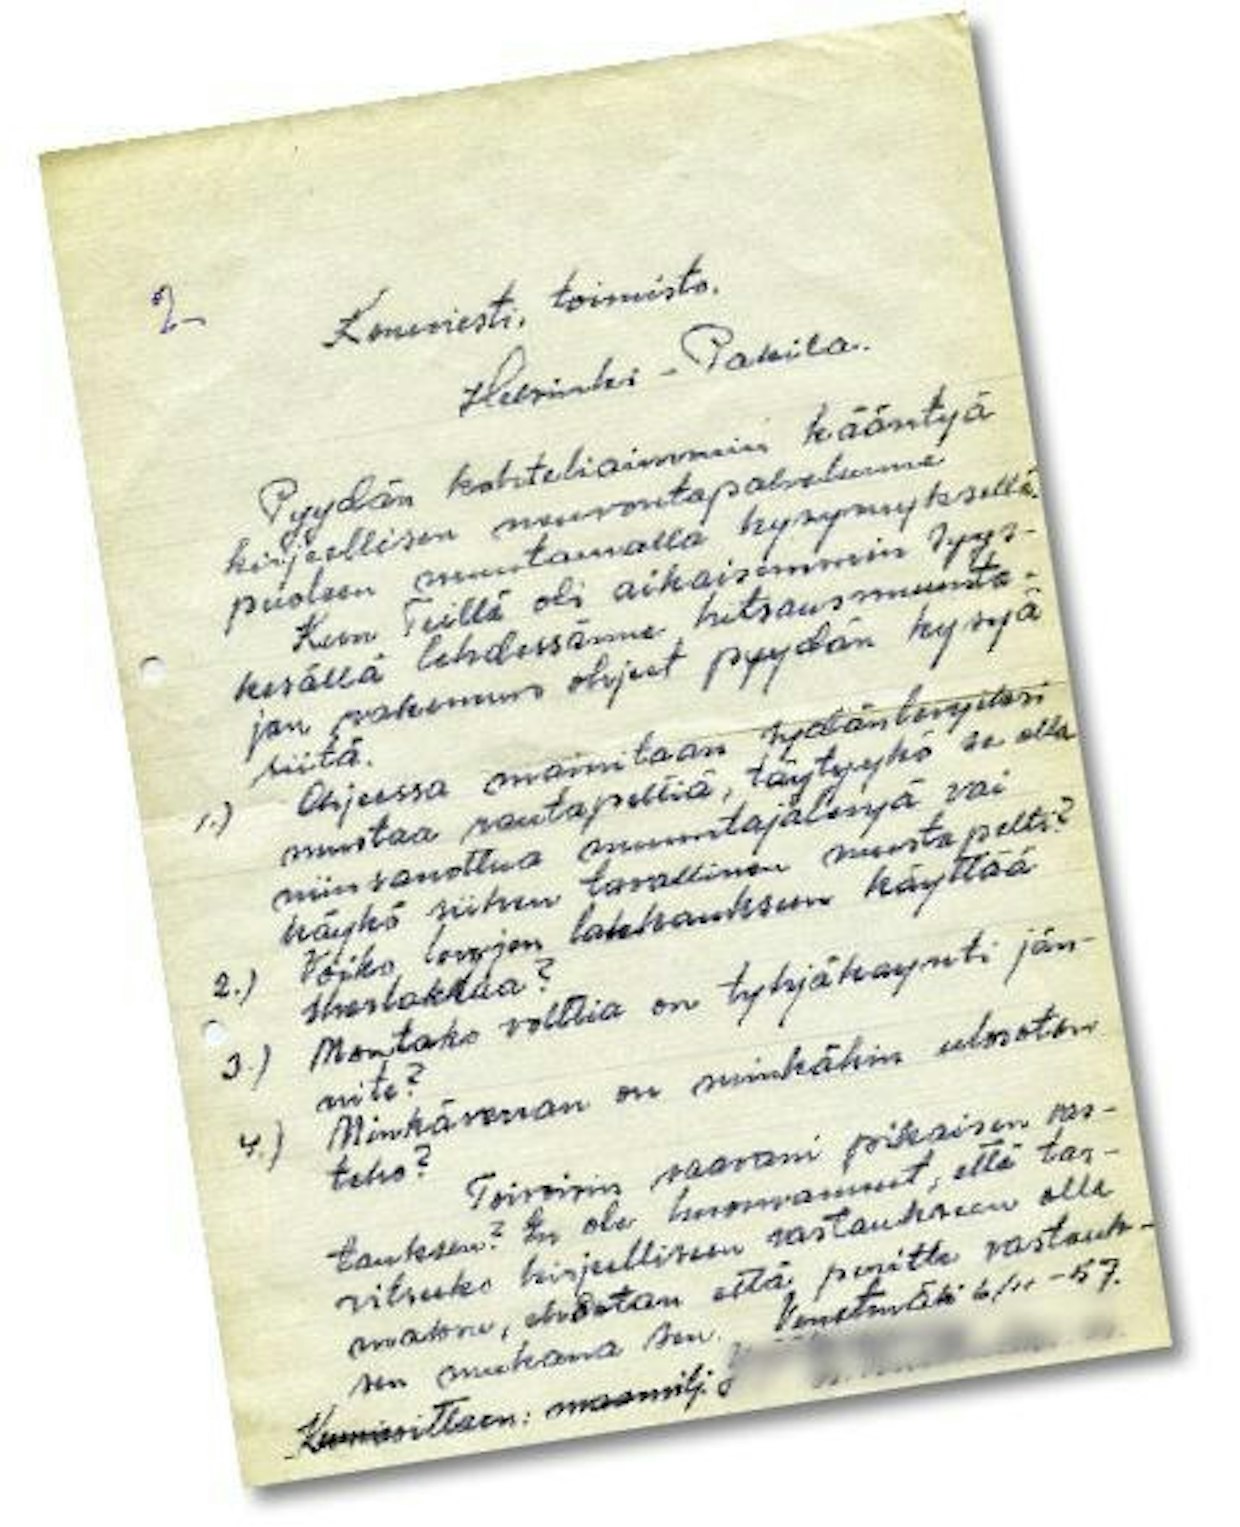 2
Koneviesti, toimisto.
Helsinki - Pakila.
Pyydän kohteliaimmin kääntyä
kirjeellisen neuvontapalvelunne
puoleen muutamalla kysymyksellä.
Kun Teillä oli aikaisemmin syys-
kesällä lehdessänne hitsausmuunta-
jan rakennus ohjeet pyydän kysyä
siitä.
1.) Ohjeessa mainitaan sydänlevyiksi
mustaa rautapeltiä, täytyykö se olla
niinsanottua muuntajalevyä vai
käykö siihen tavallinen mustapelti?
2.) Voiko levyjen lakkaukseen käyttää
sherlakkaa?
3.) Montako volttia on tyhjäkäynti jän-
nite?
4.) Minkäverran on minkähin ulosoton
teho?
Toivoisin saavani pikaisen vas-
tauksen? En ole huomannut, että tar-
vitseeko kirjeelliseen vastaukseen olla
maksu, ehdotan että peritte vastauk-
sen mukana sen. Venetmäki 6/11-57.
Kunnioittaen: maanvilj.